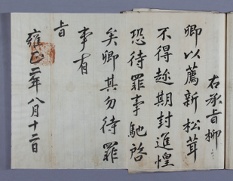 右承旨柳
卿以薦新松茸
不得趂期封進惶
恐待罪事馳啓
矣卿其勿待罪
事有
旨
雍正二年八月十二日